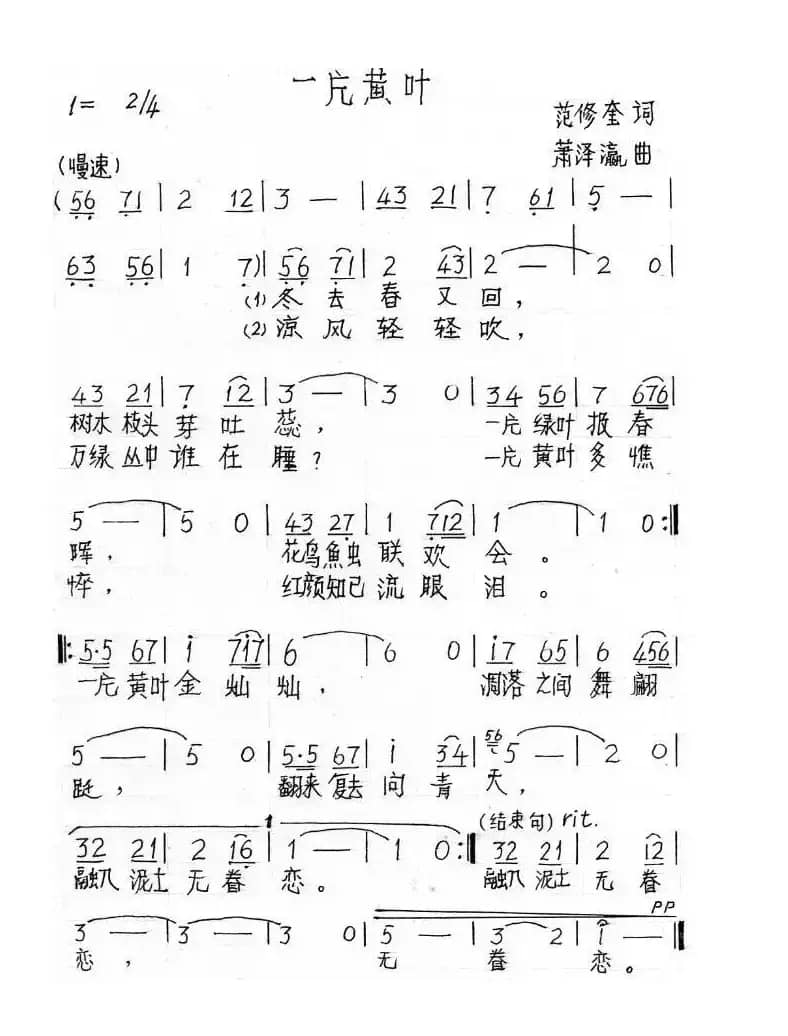 一片黄叶
1= 2/4
范修奎 词
萧泽瀛 曲
(慢速)
(56 71 | 2 12 | 3 — | 43 21 | 7 61 | 5 — |
63 56 | 1 7) | 56 71 | 2 43 | 2 — | 2 0
(1) 冬去春又回，
(2) 凉风轻轻吹，
43 21 | 7 12 | 3 — | 3 0 | 34 56 | 7 676 |
树木枝头芽吐蕊， 一片绿叶报春
万绿丛中谁在睡？ 一片黄叶多憔
5 — | 5 0 | 43 27 | 1 712 | 1 — | 1 0 :||
晖， 花鸟魚虫联欢会。
悴， 红颜知己流眼泪。
||: 5·5 67 | i 7i7 | 6 — | 6 0 | i7 65 | 6 456 |
一片黄叶金灿灿， 凋落之间舞翩
5 — | 5 0 | 5·5 67 | i 34 | 56 5 — | 2 0 |
跹， 翻来复去问青天，
1 (结束句) rit.
32 21 | 2 16 | 1 — | 1 0 :|| 32 21 | 2 12 |
融入泥土无眷恋。 融入泥土无眷
PP
3 — | 3 — | 3 0 | 5 — | 3 2 | i — ||
恋， 无眷恋。